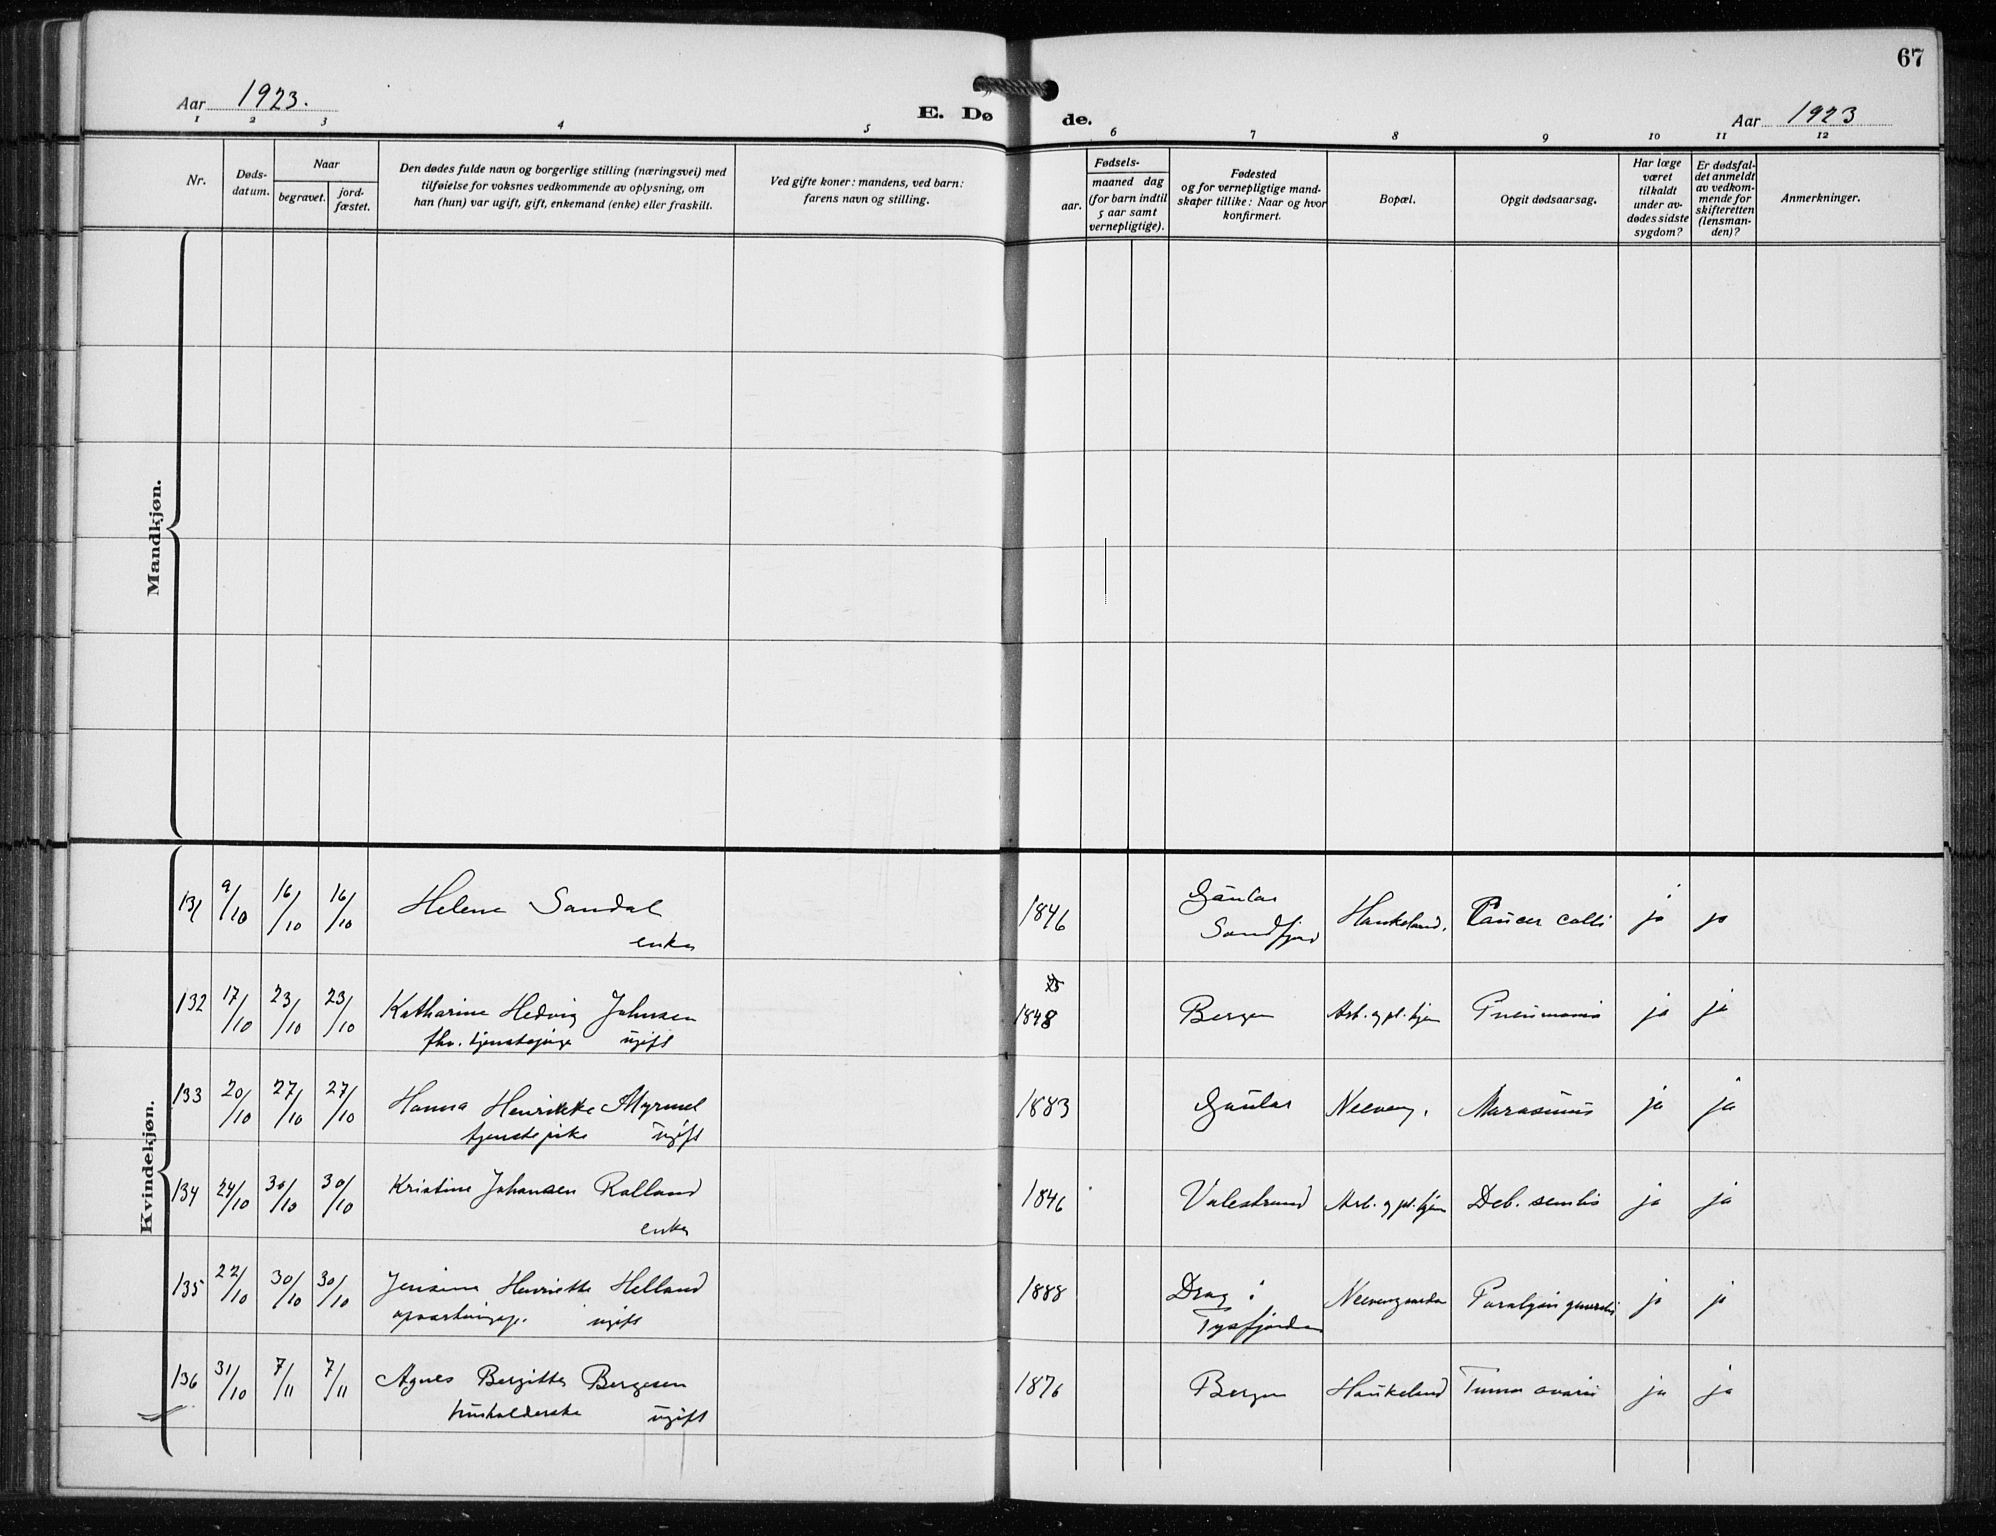 67
Aar 1923.
E. Dø de.
Aar 1923
1 2 3 4 5 6 7 8 9 10 11 12
Nr.
Døds-
datum.
Naar
begravet.
jord-
fæstet.
Den dødes fulde navn og borgerlige stilling (næringsvei) med
tilføielse for voksnes vedkommende av oplysning, om
han (hun) var ugift, gift, enkemand (enke) eller fraskilt.
Ved gifte koner: mandens, ved barn:
farens navn og stilling.
Fødsels-
aar.
maaned dag
(for barn indtil
5 aar samt
vernepligtige).
Fødested
og for vernepligtige mand-
skaper tillike: Naar og hvor
konfirmert.
Bopæl.
Opgit dødsaarsag.
Har læge
været
tilkaldt
under av-
dødes sidste
sygdom?
Er dødsfal-
det anmeldt
av vedkom-
mende for
skifteretten
(lensman-
den)?
Anmerkninger.
Mandkjøn.
Kvindekjøn.
131 9/10 16/10 16/10 Helene Sandal 1846 Gaular Haukeland. Cancer colli ja ja
enke Sondfjord
132 17/10 23/10 23/10 Katharine Hedvig Johnsen 1848 Bergen Arb. og pl. hjem Pneumonia ja ja
fhv. tjenestepige ugift
133 20/10 27/10 27/10 Hanna Henrikke Myrmel 1883 Gaular Neeveng. Marasmus ja ja
tjenestepike ugift
134 24/10 30/10 30/10 Kristine Johansen Rolland 1846 Valestrand Arb. og pl. hjem Deb. senilis ja ja
enke
135 22/10 30/10 30/10 Jensine Henriette Helland 1888 Drag i Neevengaarden Paralysis generalis ja ja
opvartningsp. ugift Tysfjorden
136 31/10 7/11 7/11 Agnes Bergitte Bergesen 1876 Bergen Haukeland Tumor ovarii ja ja
husholderske ugift